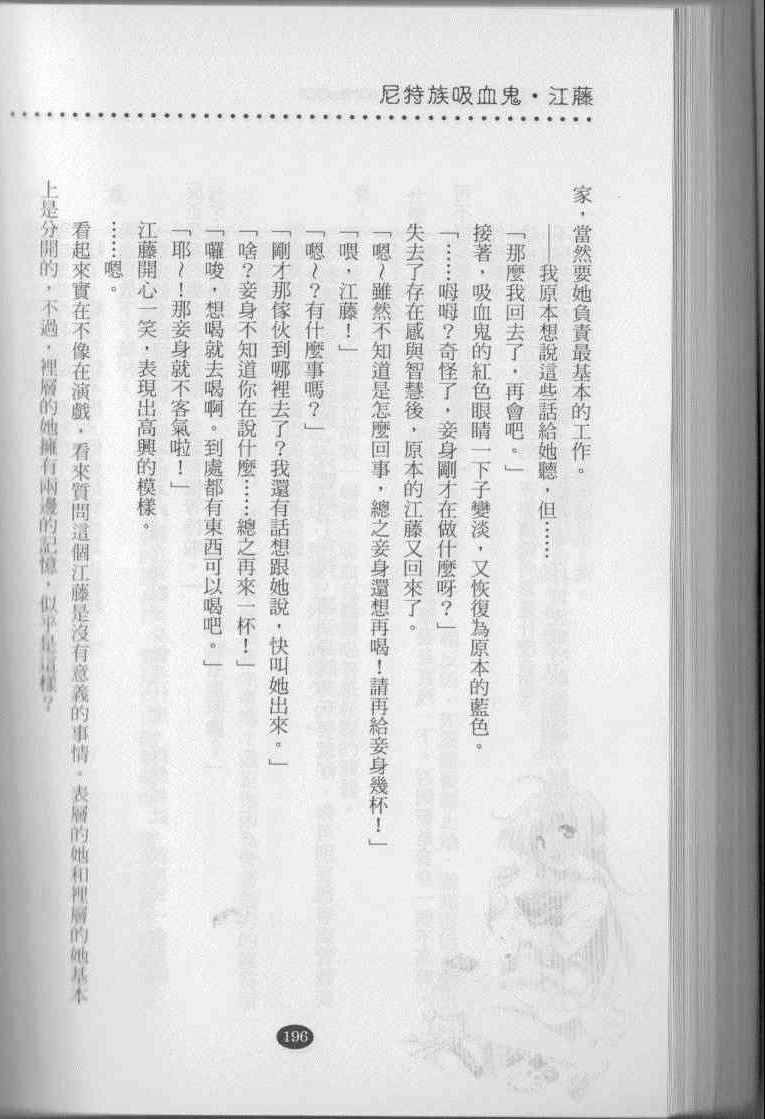 尼特族吸血鬼・江藤
家，當然要她負責最基本的工作。
——我原本想說這些話給她聽，但……
「那麼我回去了，再會吧。」
接著，吸血鬼的紅色眼睛一下子變淡，又恢復為原本的藍色。
「……呣呣？奇怪了，妾身剛才在做什麼呀？」
失去了存在感與智慧後，原本的江藤又回來了。
「嗯～雖然不知道是怎麼回事，總之妾身還想再喝！請再給妾身幾杯！」
「喂，江藤！」
「嗯～？有什麼事嗎？」
「剛才那傢伙到哪裡去了？我還有話想跟她說，快叫她出來。」
「啥？妾身不知道你在說什麼……總之再來一杯！」
「囉唆，想喝就去喝啊。到處都有東西可以喝吧。」
「耶～！那妾身就不客氣啦！」
江藤開心一笑，表現出高興的模樣。
……嗯。
看起來實在不像在演戲，看來質問這個江藤是沒有意義的事情。表層的她和裡層的她基本
上是分開的，不過，裡層的她擁有兩邊的記憶，似乎是這樣？
196